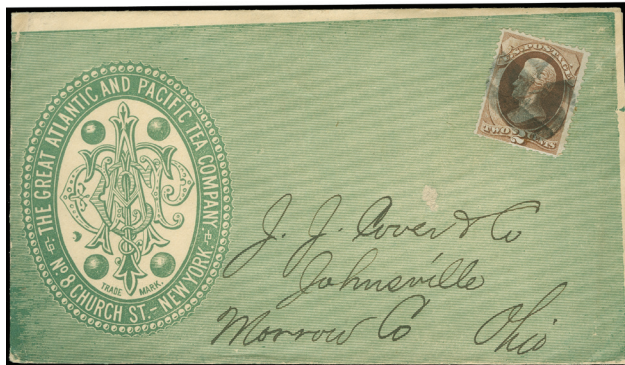 THE GREAT ATLANTIC AND PACIFIC TEA COMPANY
TRADE MARK.
No. 8 CHURCH ST. - NEW YORK.
U.S. POSTAGE
TWO 2 CENTS
J. J. Cover & Co
Johnsville
Morrow Co Ohio